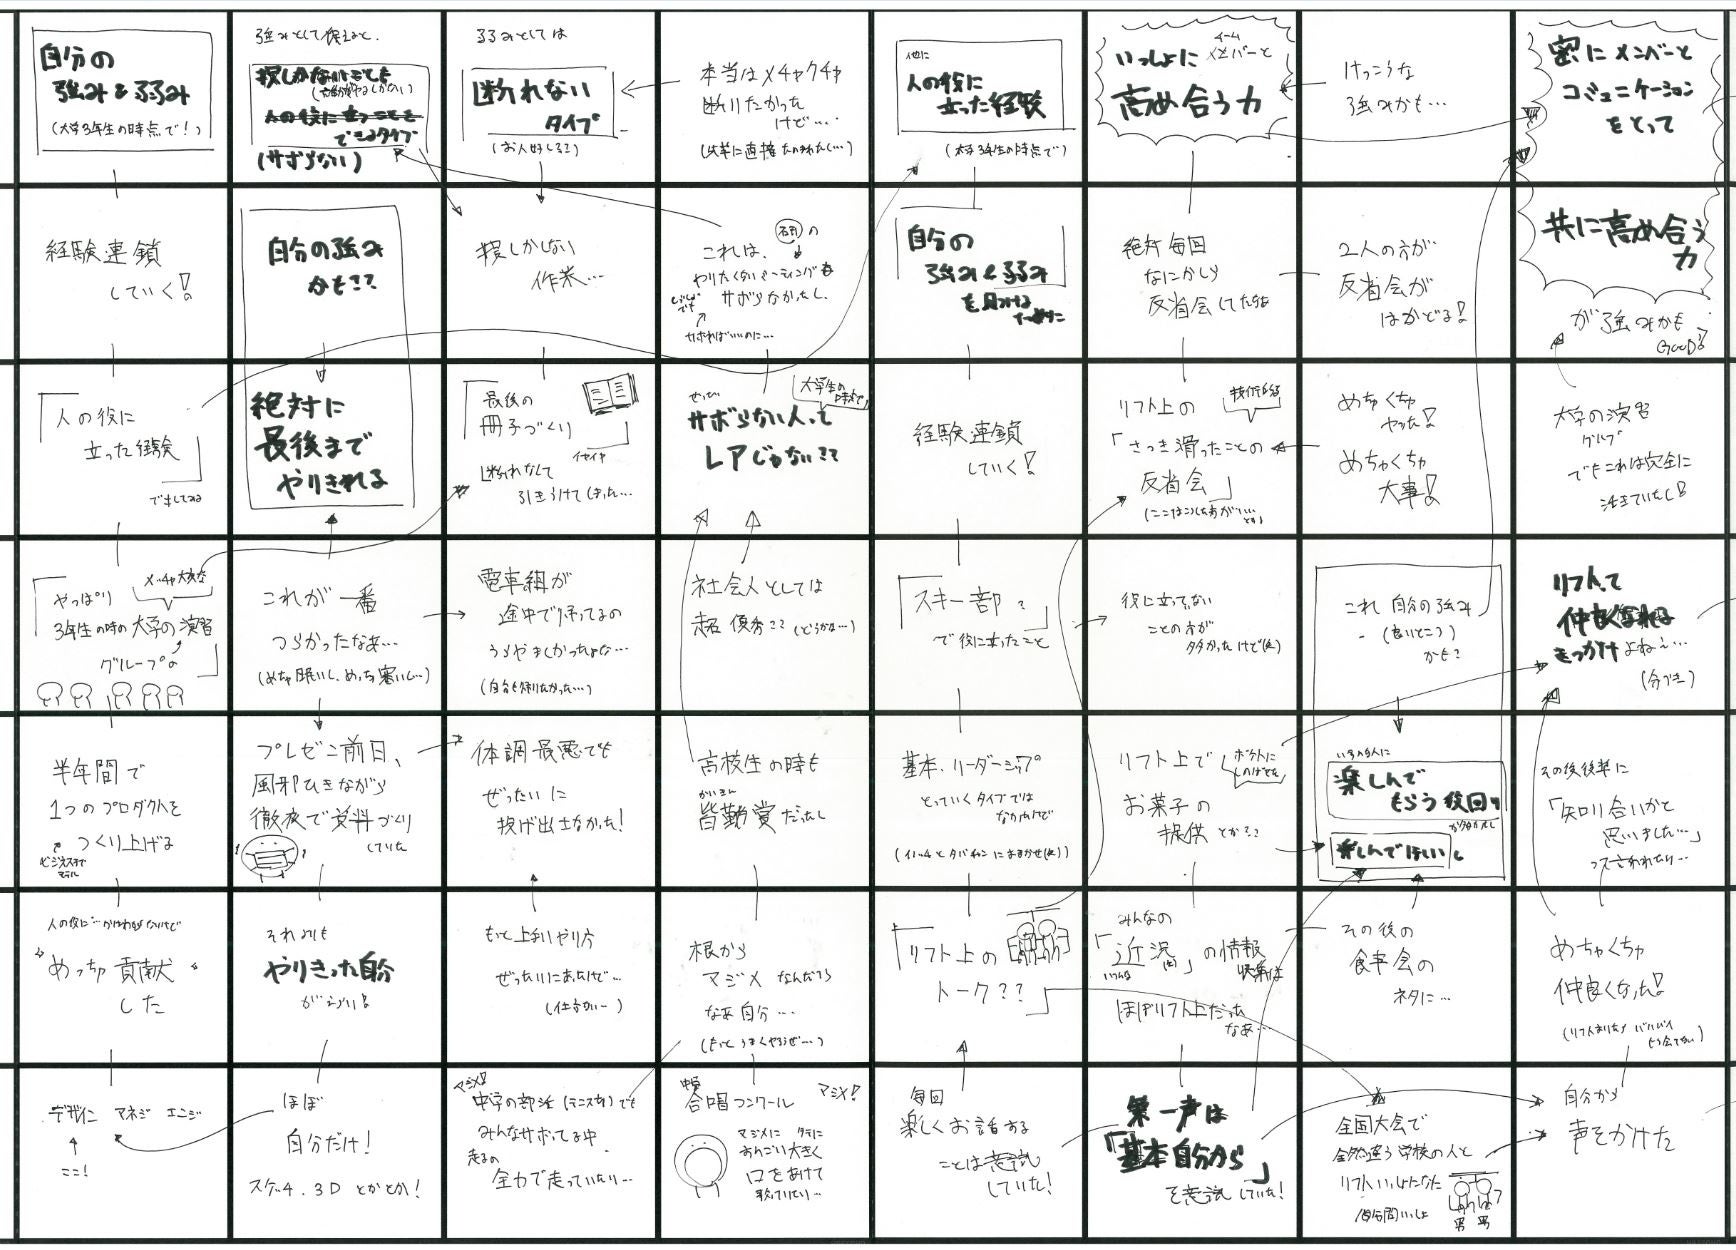 自分の
強み&弱み
(大学3年生の時点で!)
経験連鎖
していく!
「人の役に
立った経験」
やっぱり
メッチャ大変な
3年生の時の大学の演習
グループの
半年間で
1つのプロダクトを
つくり上げる
"めっちゃ貢献"
した
デザイン マネジ エンジ
ここ!
強みとして捉えると、
できるタイプ
(サボらない)
自分の強み
かも??
絶対に
最後まで
やりきれる
これが一番
つらかったなあ…
(めちゃ眠いし、めっちゃ寒いし…)
プレゼン前日、
風邪ひきながら
徹夜で資料づくり
していた
それでも
やりきった自分
がえらい!
ほぼ
自分だけ!
スケッチ、3Dとかとか!
弱みとしては
断れない
タイプ
(お人好し??)
損しかしない
作業…
最後の
冊子づくり
断れなくて
引きうけてしまった…
電車組が
途中で帰ってるの
うらやましかったよな…
(自分も帰りたかった…)
体調最悪でも
ぜったいに
投げ出さなかった!
もっと上手いやり方
ぜったいにあったけど…
(仕方ない…)
マジメ!
中学の部活(テニス部)でも
みんなサボってる中
走るの
全力で走っていたり…
本当はメチャクチャ
断りたかった
けど…
これは、
やりたくないミーティングも
サボらなかったし、
サボればいいのに…
大学生の
時点で
ぜったい
サボらない人って
レアじゃない??
社会人としては
超優秀??(どうかな…)
高校生の時も
かいきん
皆勤賞だったし
根から
マジメなんだろう
なあ自分…
(もっとうまくやろうぜ…)
中学
合唱コンクール
マジメ!
マジメに タテに
おんごい大きく
口をあけて
歌っていたり…
他に
人の役に
立った経験
(大学3年生の時点で)
自分の
強み&弱み
を見つける
ために
経験連鎖
していく!
「スキー部」
で役に立ったこと
基本、リーダーシップ
とっていくタイプでは
ないけど
「リフト上の
トーク??」
毎回
楽しくお話する
ことは意識
していた!
いっしょに
チームメンバーと
高め合う力
絶対毎回
なにかしら
反省会してたな
リフト上の
「さっき滑ったことの
反省会」
役に立ってない
ことの方が
多かったけど(笑)
リフト上で
お菓子の
提供とか??
ポケットに
しのばせる
みんなの
「近況(笑)」の情報
収集は
ほぼリフト上だった
なあ…
第一声は
「基本自分から」
を意識していた!
けっこうな
強みかも…
2人の方が
反省会が
はかどる!
めちゃくちゃ
やった!
めちゃくちゃ
大事!
これ自分の強み
(良いところ)
かも?
いろんな人に
楽しんで
もらう役回り
が多かったし
楽しんでほしいし
その後の
食事会の
ネタに…
全国大会で
全然違う学校の人と
リフトいっしょになった
10分間いっしょ
男 男
密にメンバーと
コミュニケーション
をとって
共に高め合う
力
が強みかも
GOOD!
大学の演習
グループ
でもこれは完全に
活きていたし!
リフトって
仲良くなれる
きっかけよねぇ…
(今づき)
その後後輩に
「知り合いかと
思いました…」
って言われたり…
めちゃくちゃ
仲良くなった!
(リフトおりたらバイバイ
もう会えない)
自分から
声をかけた